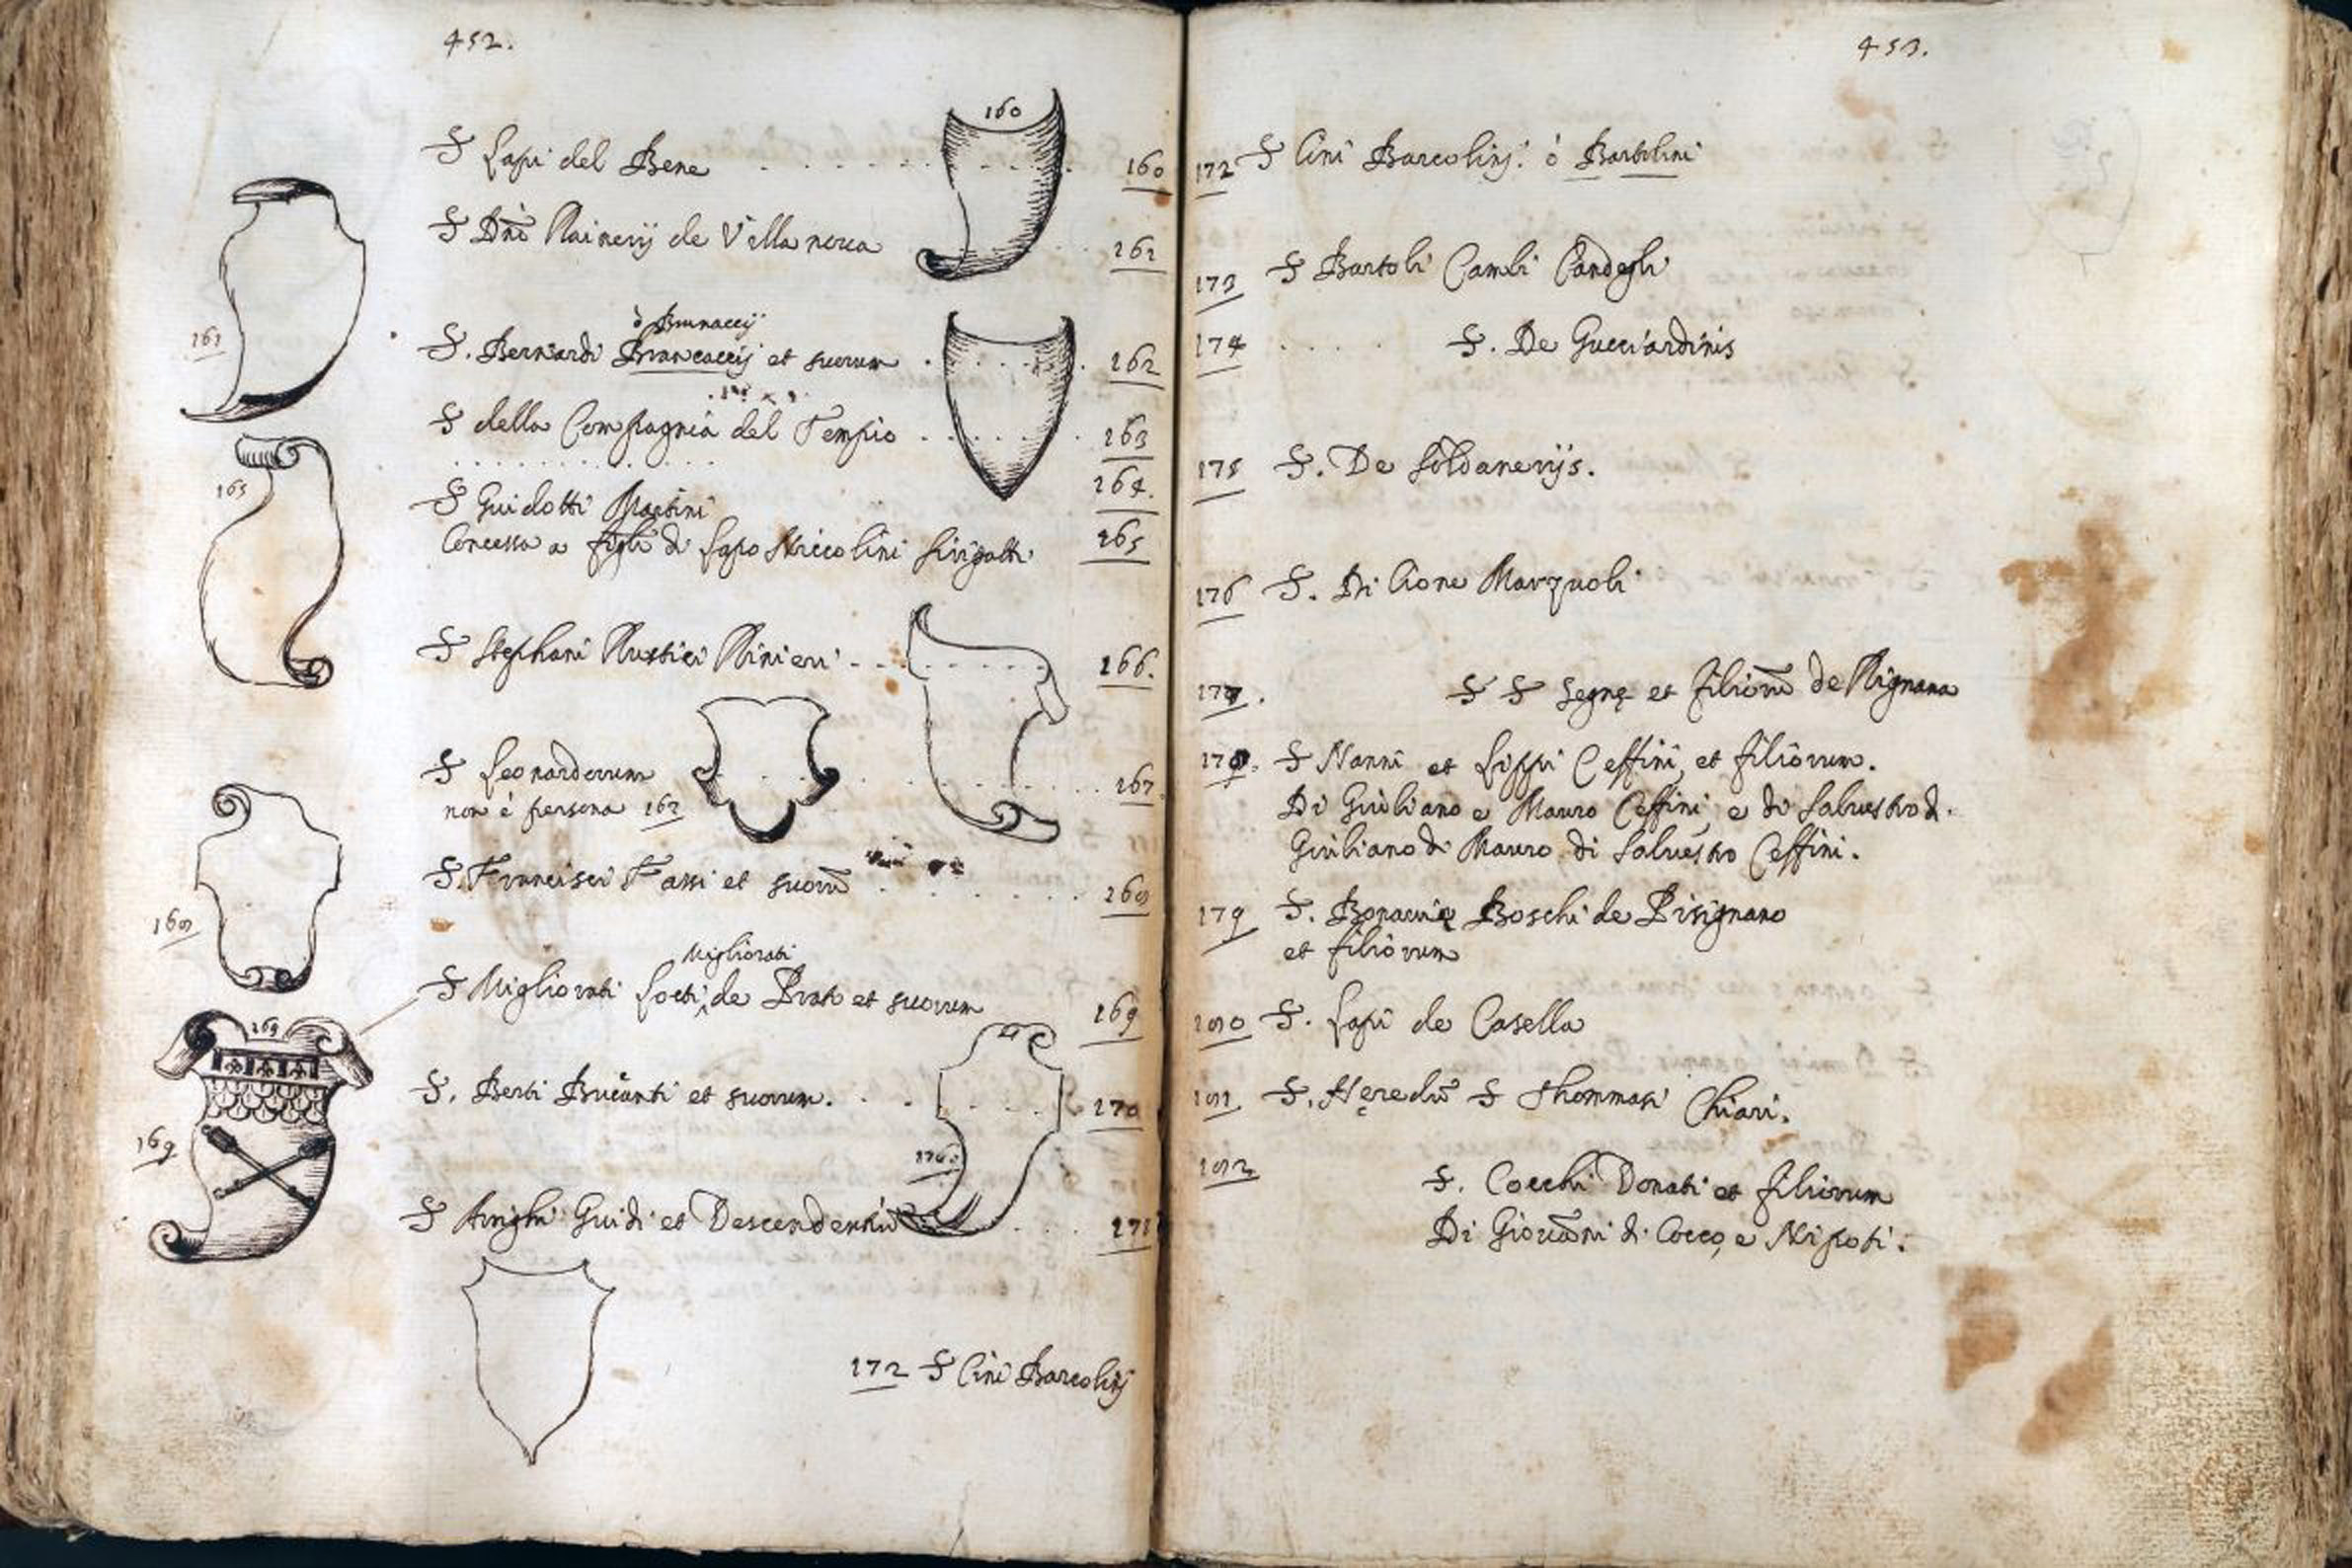 452.
160
S Lapi del Bene 160
S Dnī Rainerij de Villa nova 161
161
ò Brunaccij
S. Bernardi Brancaccij et suorum 162
S della Compagnia del Tempio 163
164.
165
S Guidotti Martini
Concessa a figli di Lapo Niccolini Sirigatti 165
S Stephani Rustici Rinieri 166.
S Leonardorum 167.
non è persona 167
S. Francisci Fassi et suorū 168
168
Migliorati
S Migliorati Locti, de Prato et suorum 169
169
169
S. Berti Bucanti et suorum. 170
170.
S Arrighi Guidi et Descendentiū 171
172 S Cini Barcolinj
453.
172 S Cini Barcolinj. ò Bartolini
173 S Bartoli Cambi Candegli
174 S. De Gucciardinis
175 S. De Soldanerijs.
176 S. Di Cione Marzuoli
177. S S Segnę et filiorū de Rignana
178. S Nanni et Lippi Ceffini et filiorum.
Di Giuliano e Mauro Ceffini, e di Salvestro d.
Giuliano di Mauro di Salvestro Ceffini.
179 S. Bonacuię Boschi de Pisignano
et filiorum
180 S. Lapi de Casella
181 S. Hęredū S Thommasi Chiari.
182
S. Cocchi Donati et filiorum
Di Giovāni di Cocco, e Nipoti.